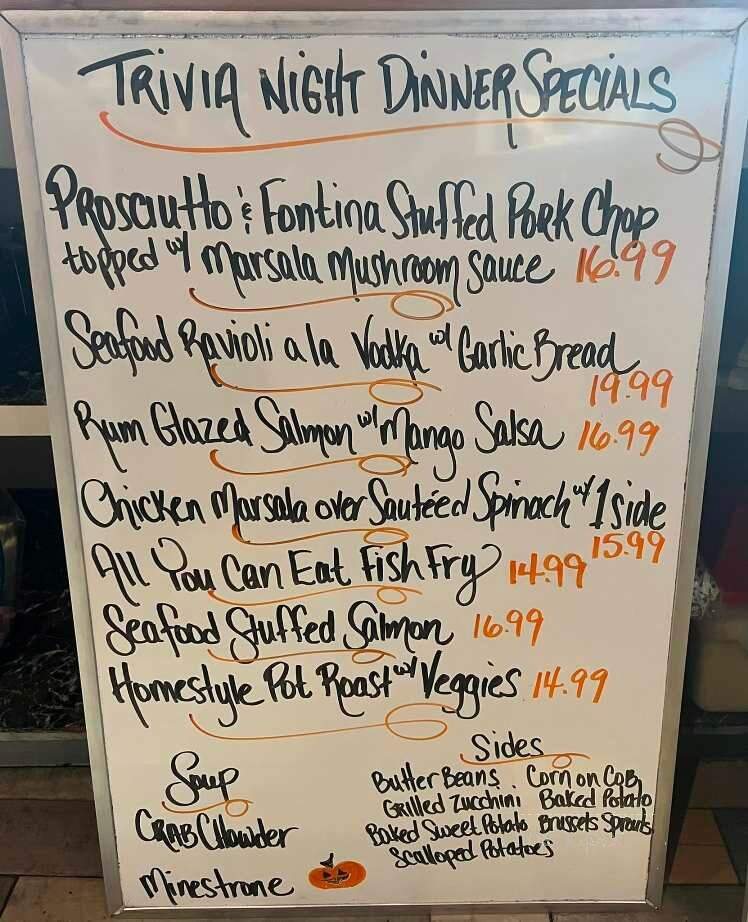 TRIVIA NIGHT DINNER SPECIALS
Prosciutto & Fontina Stuffed Pork Chop
topped w/ Marsala Mushroom Sauce 16.99
Seafood Ravioli a la Vodka w/ Garlic Bread
19.99
Rum Glazed Salmon w/ Mango Salsa 16.99
Chicken Marsala over Sautéed Spinach w/ 1 side
15.99
All You Can Eat Fish Fry 14.99
Seafood Stuffed Salmon 16.99
Homestyle Pot Roast w/ Veggies 14.99
Soup
CRAB Chowder
Minestrone
Sides
Butter Beans Corn on Cob
Grilled Zucchini Baked Potato
Baked Sweet Potato Brussels Sprouts
Scalloped Potatoes